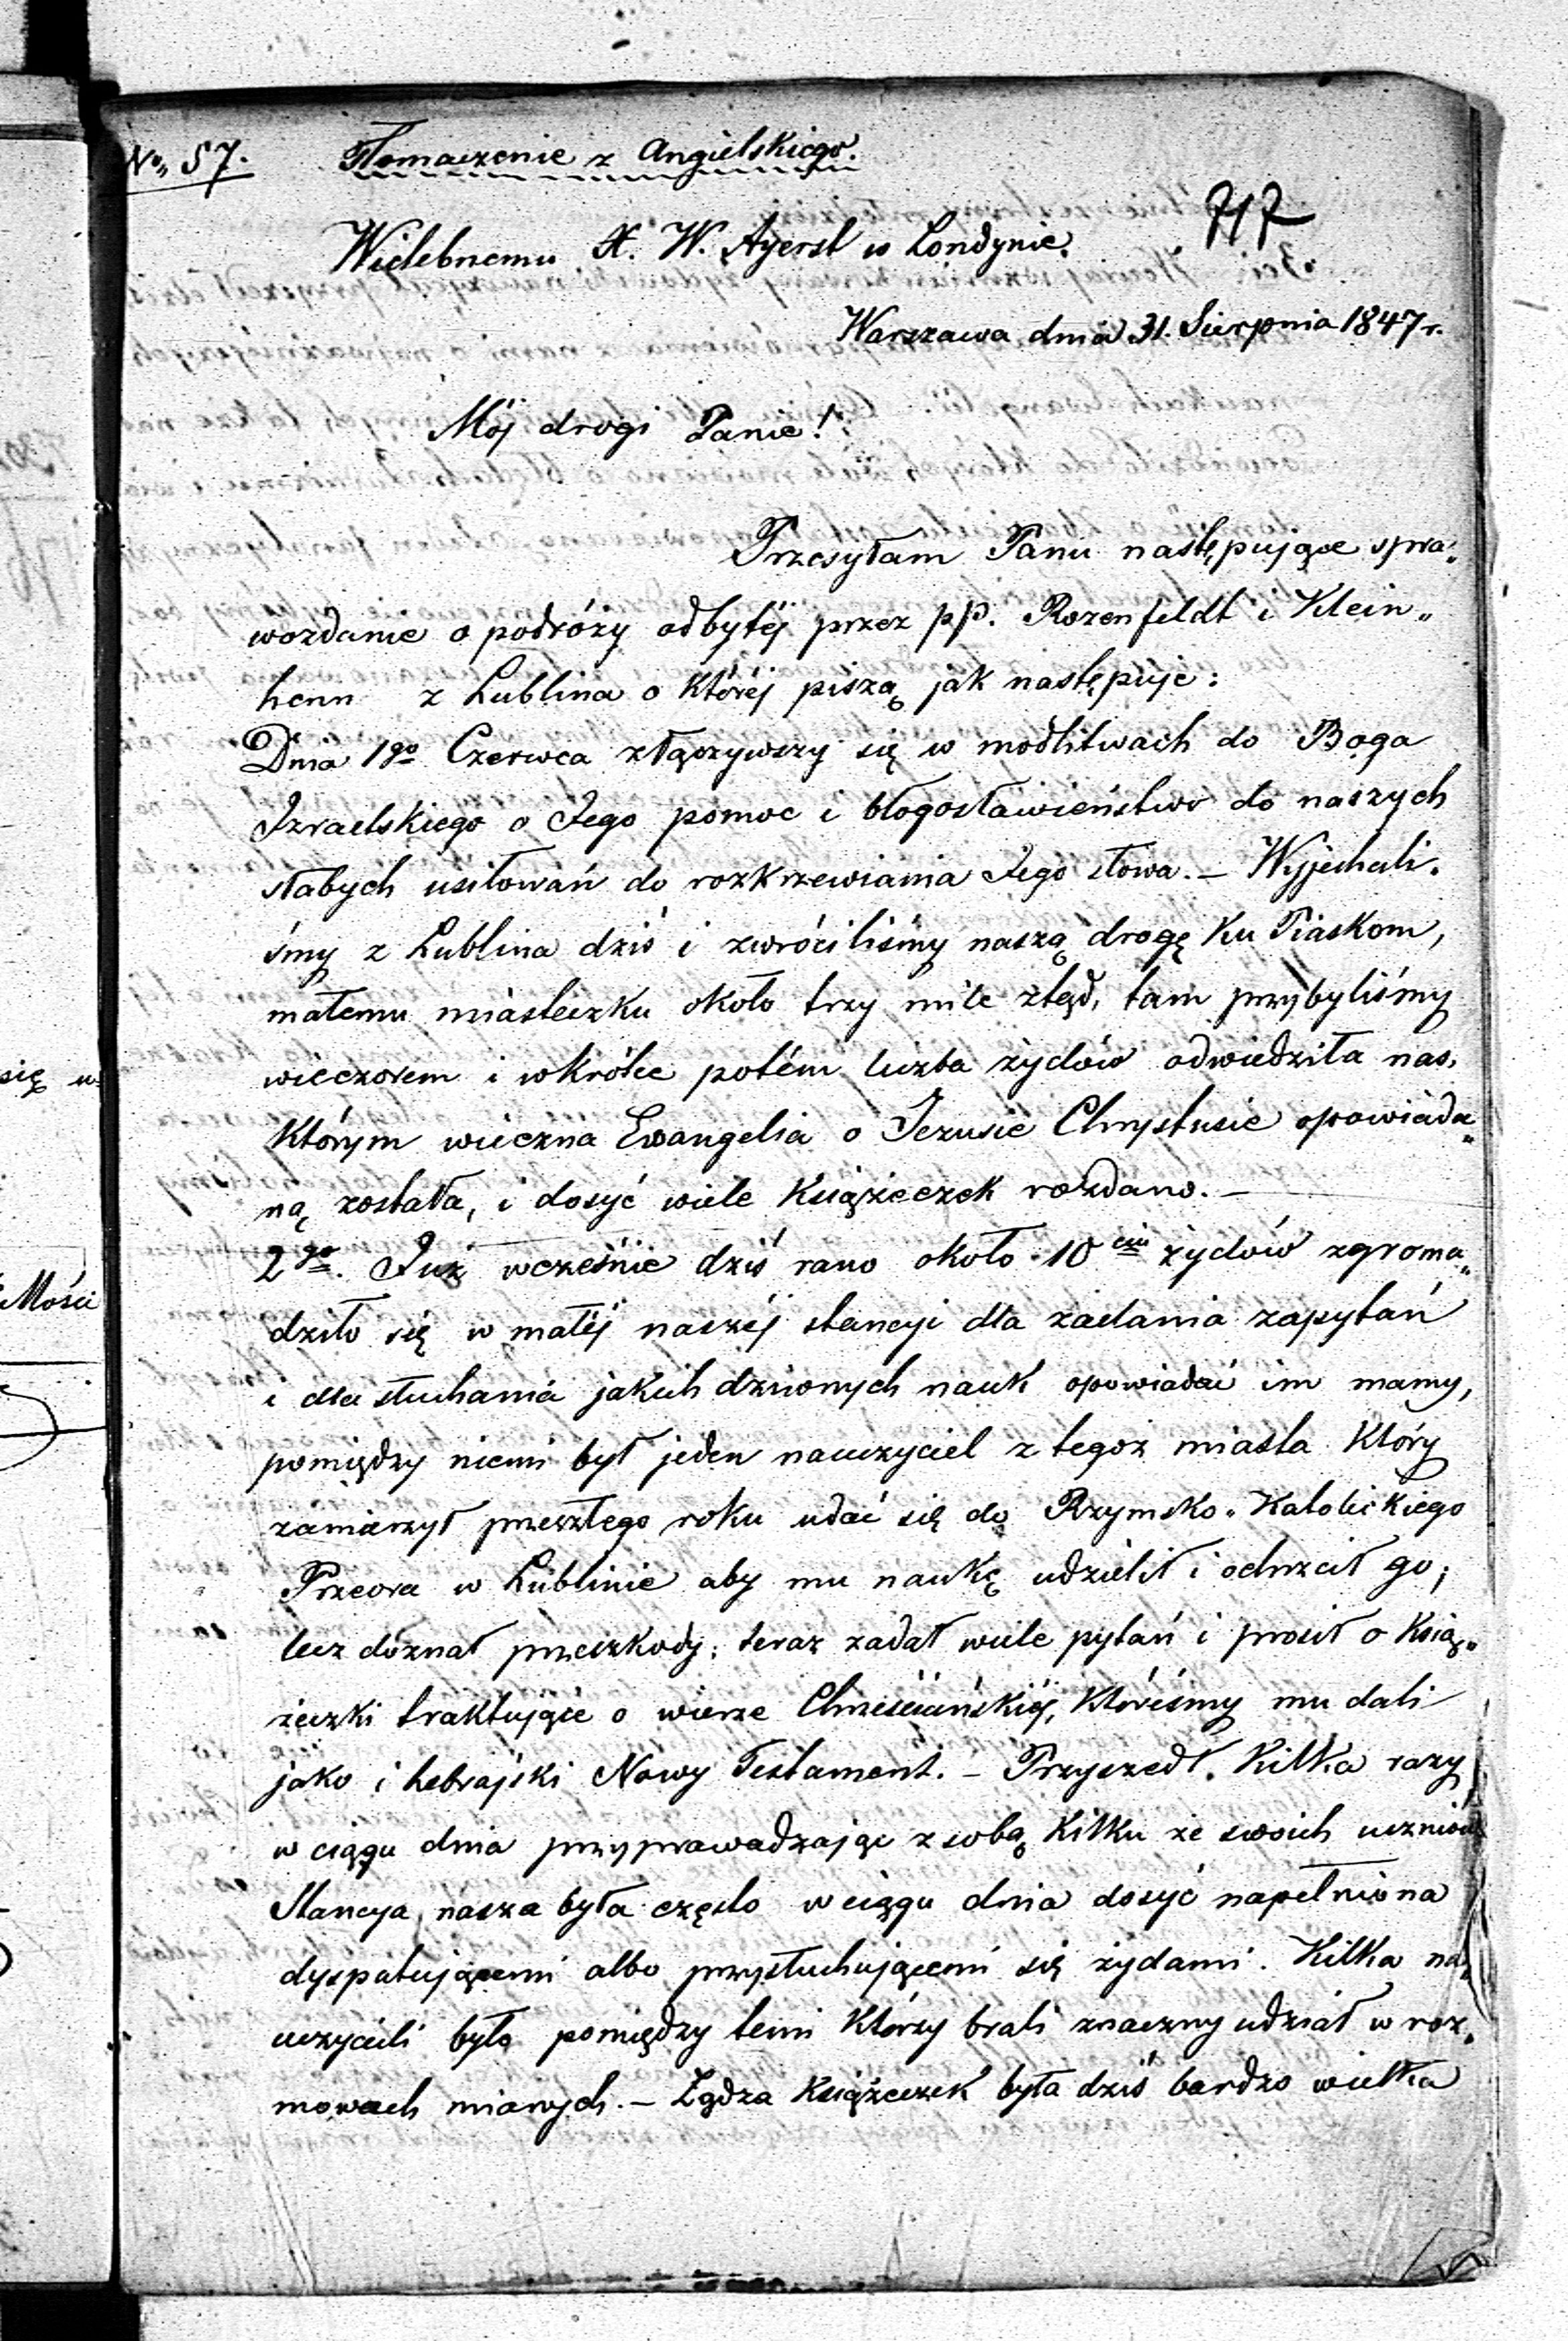 No„ 57.
Tłomaczenie z Angielskiego.
717
Wielebnemu X. W. Ayerst w Londynie.
Warszawa dnia 31. Sierpnia 1847 r.
Mój drogi Panie!
Przesyłam Panu następujące spra„
wozdanie o podróży odbytéj przez pp. Rozenfeldt i Klein„
henn z Lublina o któréj piszą jak następuje:
Dnia 1go Czerwca złączywszy się w modlitwach do Boga
Izraelskiego o Jego pomoc i błogosławieństwo do naszych
słabych usiłowań do rozkrzewiania Jego słowa. – Wyjechali„
śmy z Lublina dziś i zwróciliśmy naszą drogę ku Piaskom,
małemu miasteczku około trzy mile ztąd, tam przybyliśmy
wieczorem i wkrótce potém liczba żydów odwiedziła nas,
którym wieczna Ewangelia o Jezusie Chrystusie opowiada„
ną została, i dosyć wiele książeczek rozdano. –
2go. Już wcześnie dziś rano około 10ciu żydów zgroma„
dziło się w małéj naszéj stancyi dla zadania zapytań
i dla słuchania jakich dziwnych nauk opowiadać im mamy,
pomiędzy niemi był jeden nauczyciel z tegoż miasta który
zamierzył przeszłego roku udać się do Rzymsko„Katolickiego
Przeora w Lublinie aby mu naukę udzielił i ochrzcił go;
lecz doznał przeszkody; teraz zadał wiele pytań i prosił o ksią„
żeczki traktujące o wierze Chrześciańskiéj, któreśmy mu dali
jako i hebrajski Nowy Testament. – Przyszedł kilka razy
w ciągu dnia przyprawadzając z sobą kilku ze swoich uczniów
Stancya nasza była często w ciągu dnia dosyć napełniona
dysputującemi albo przysłuchującemi się żydami. Kilka na„
uczycieli było pomiędzy temi którzy brali znaczny udział w roz„
mowach mianych. – Żądza książeczek była dziś bardzo wielka
się w
Mości